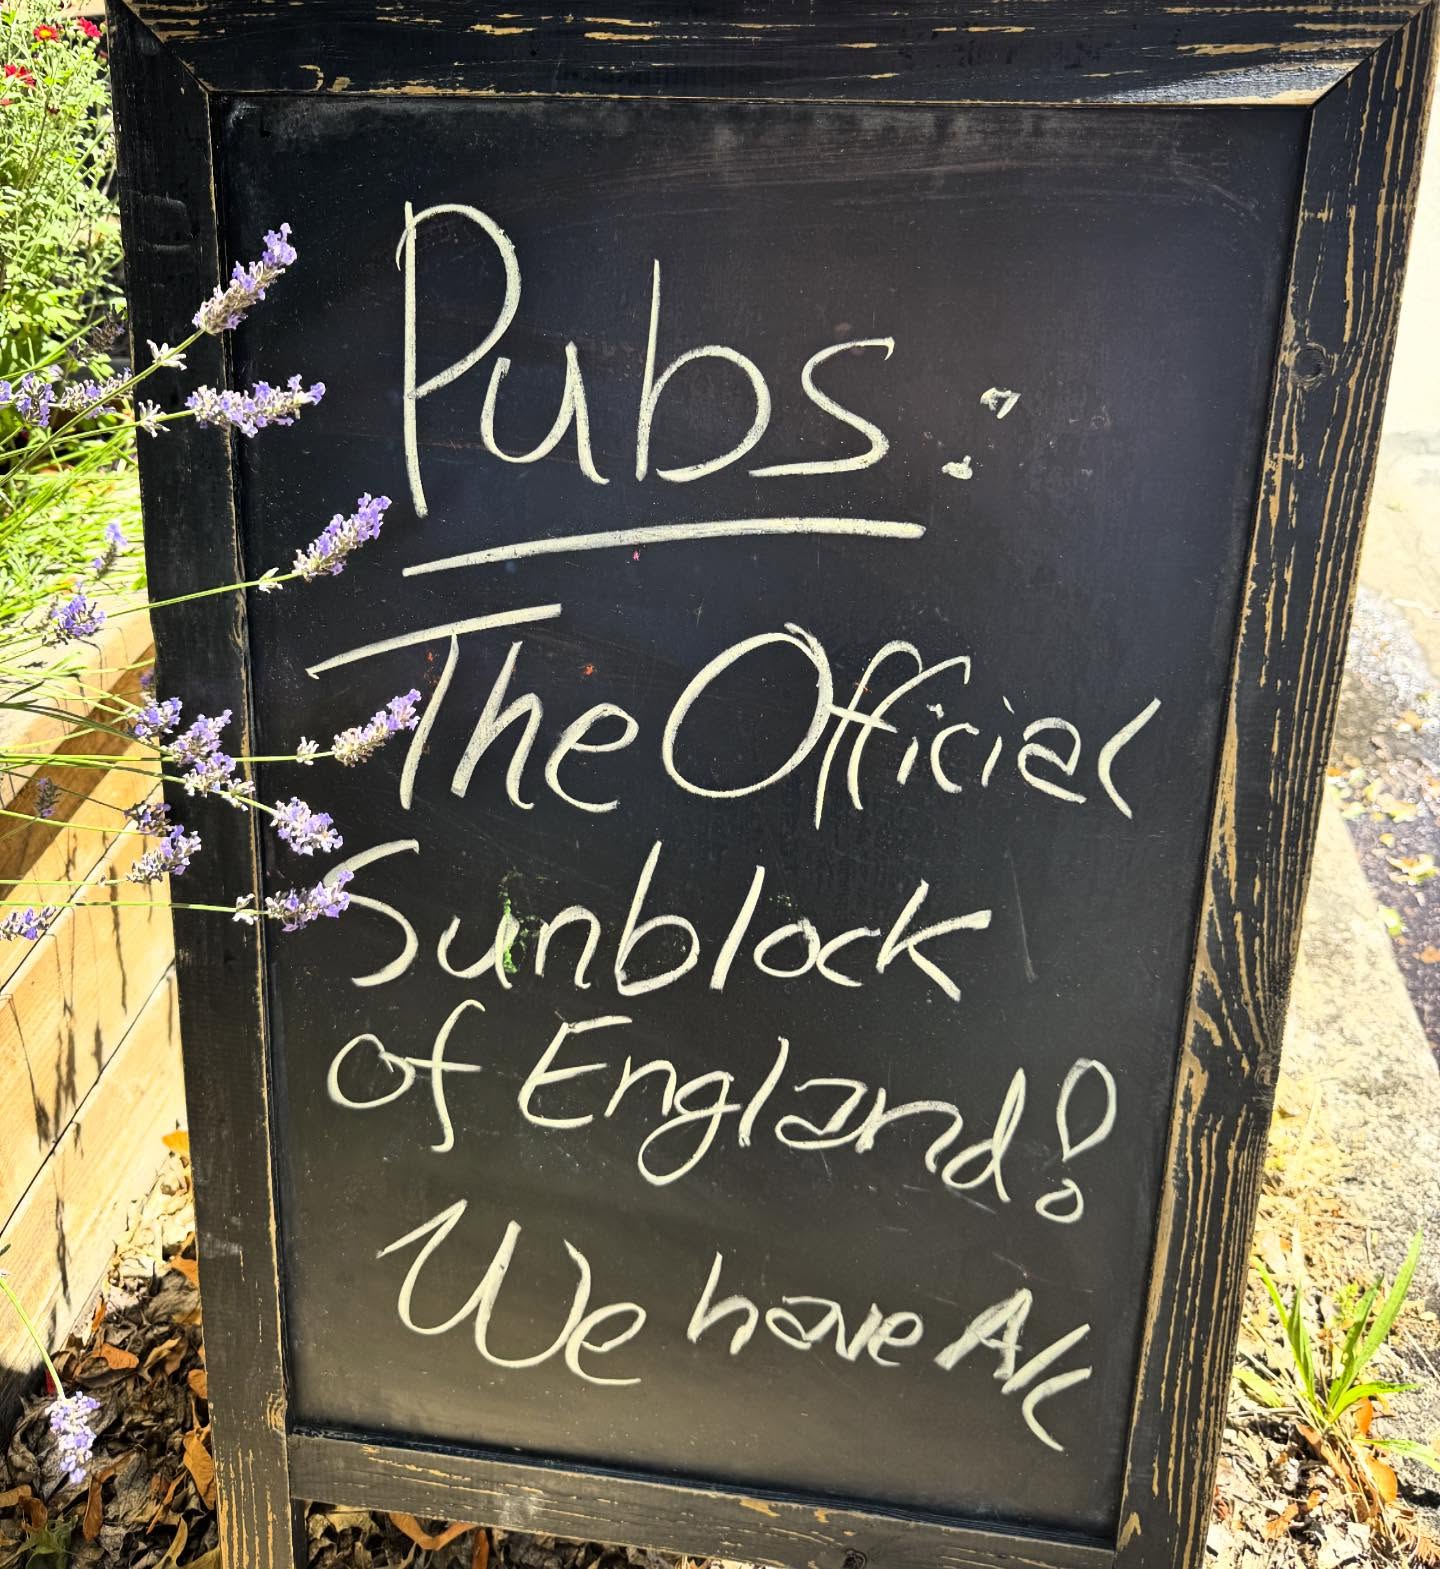 Pubs:
The Official
Sunblock
of England!
We have A/C